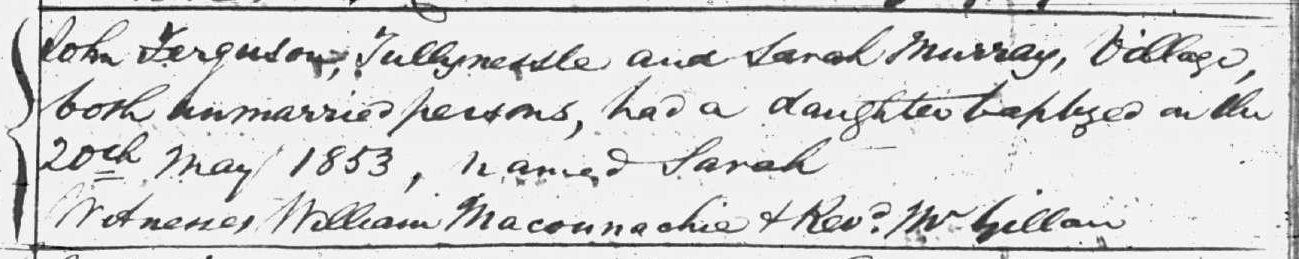 John Ferguson, Tullynessle and Sarah Murray, Village,
both unmarried persons, had a daughter baptized on the
20th May 1853, named Sarah
Witnesses William Maconnachie & Revd. Mr Gillan